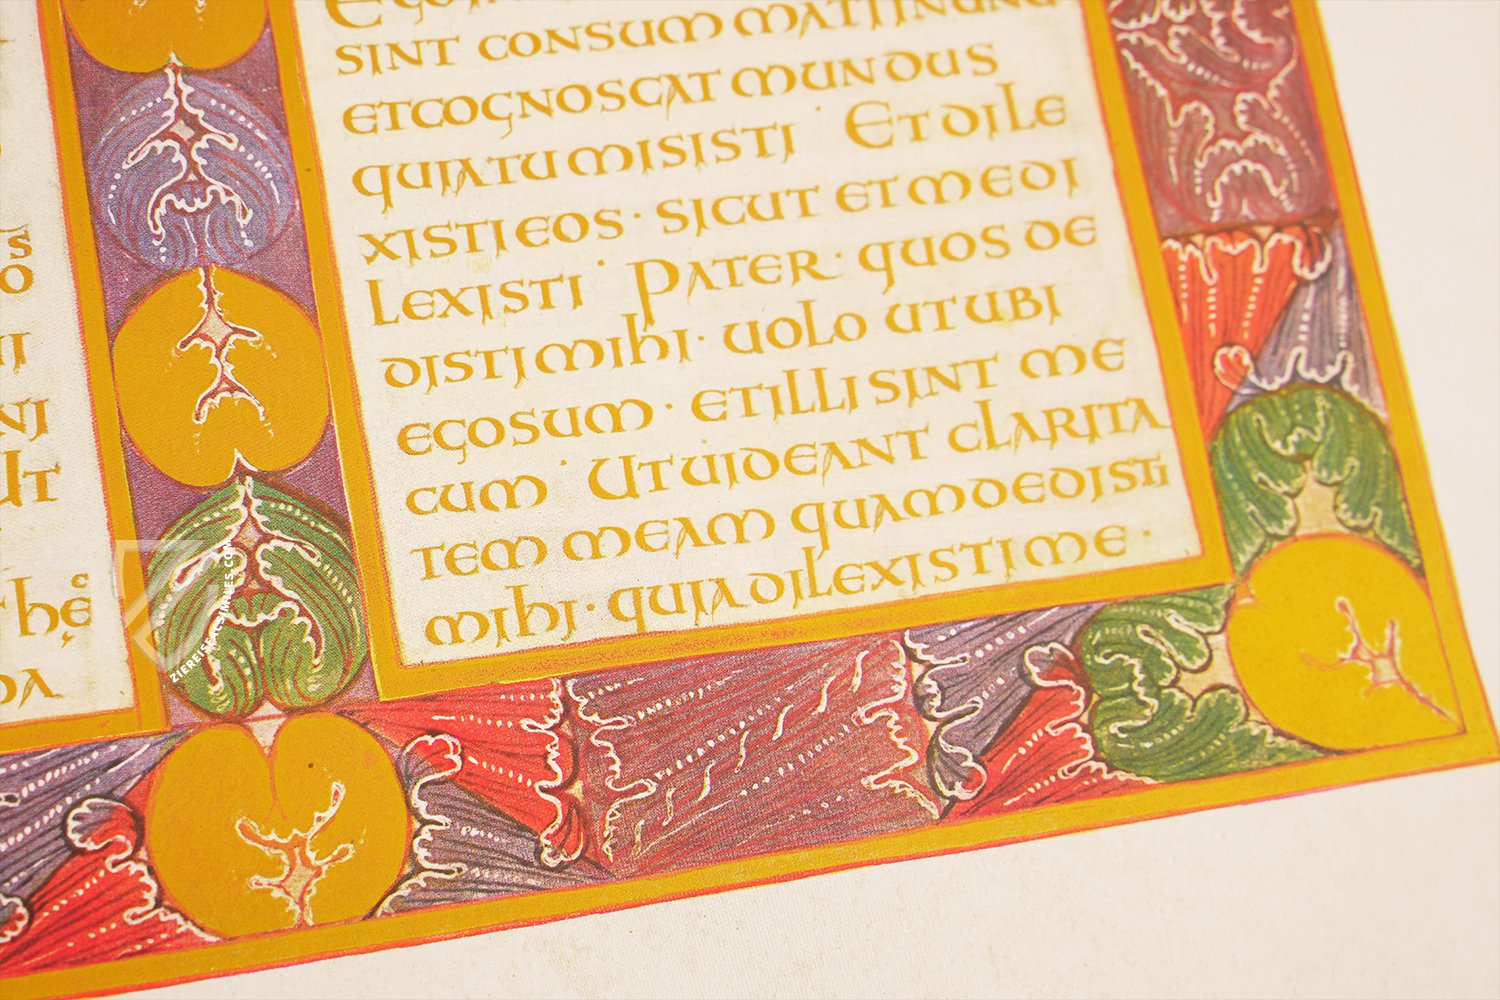 SINT CONSUMMATI IN UNUM
ETCOGNOSCAT MUNDUS
QUIATUMISISTI ET DILE
XISTI EOS · SICUT ET ME DI
LEXISTI PATER · QUOS DE
DISTI MIHI · UOLO UT UBI
EGO SUM · ET ILLI SINT ME
CUM UT UIDEANT CLARITA
TEM MEAM QUAM DEDISTI
MIHI · QUIA DILEXISTI ME ·
ZIEREIS FACSIMILES.COM